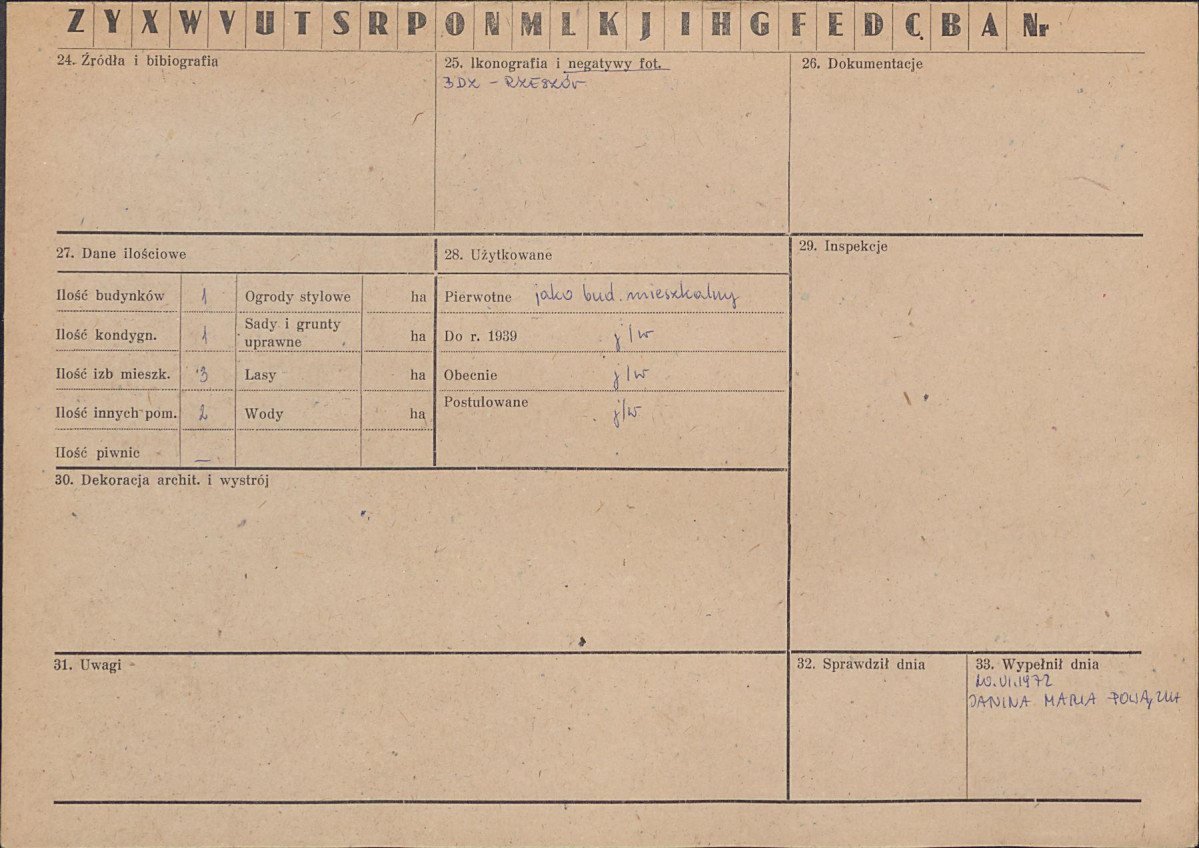 Z Y X W V U T S R P O N M L K J I H G F E D C B A Nr
24. Źródła i bibiografia
25. Ikonografia i negatywy fot.
26. Dokumentacje
27. Dane ilościowe
28. Użytkowane
29. Inspekcje
Ilość budynków 1 Ogrody stylowe ha
Pierwotne jako bud. mieszkalny
Ilość kondygn. 1 Sady i grunty uprawne ha
Do r. 1939 j/w
Ilość izb mieszk. 3 Lasy ha
Obecnie j/w
Ilość innych pom. 2 Wody ha
Postulowane j/w
Ilość piwnic —
30. Dekoracja archit. i wystrój
31. Uwagi
32. Sprawdził dnia
33. Wypełnił dnia
JANINA MARIA